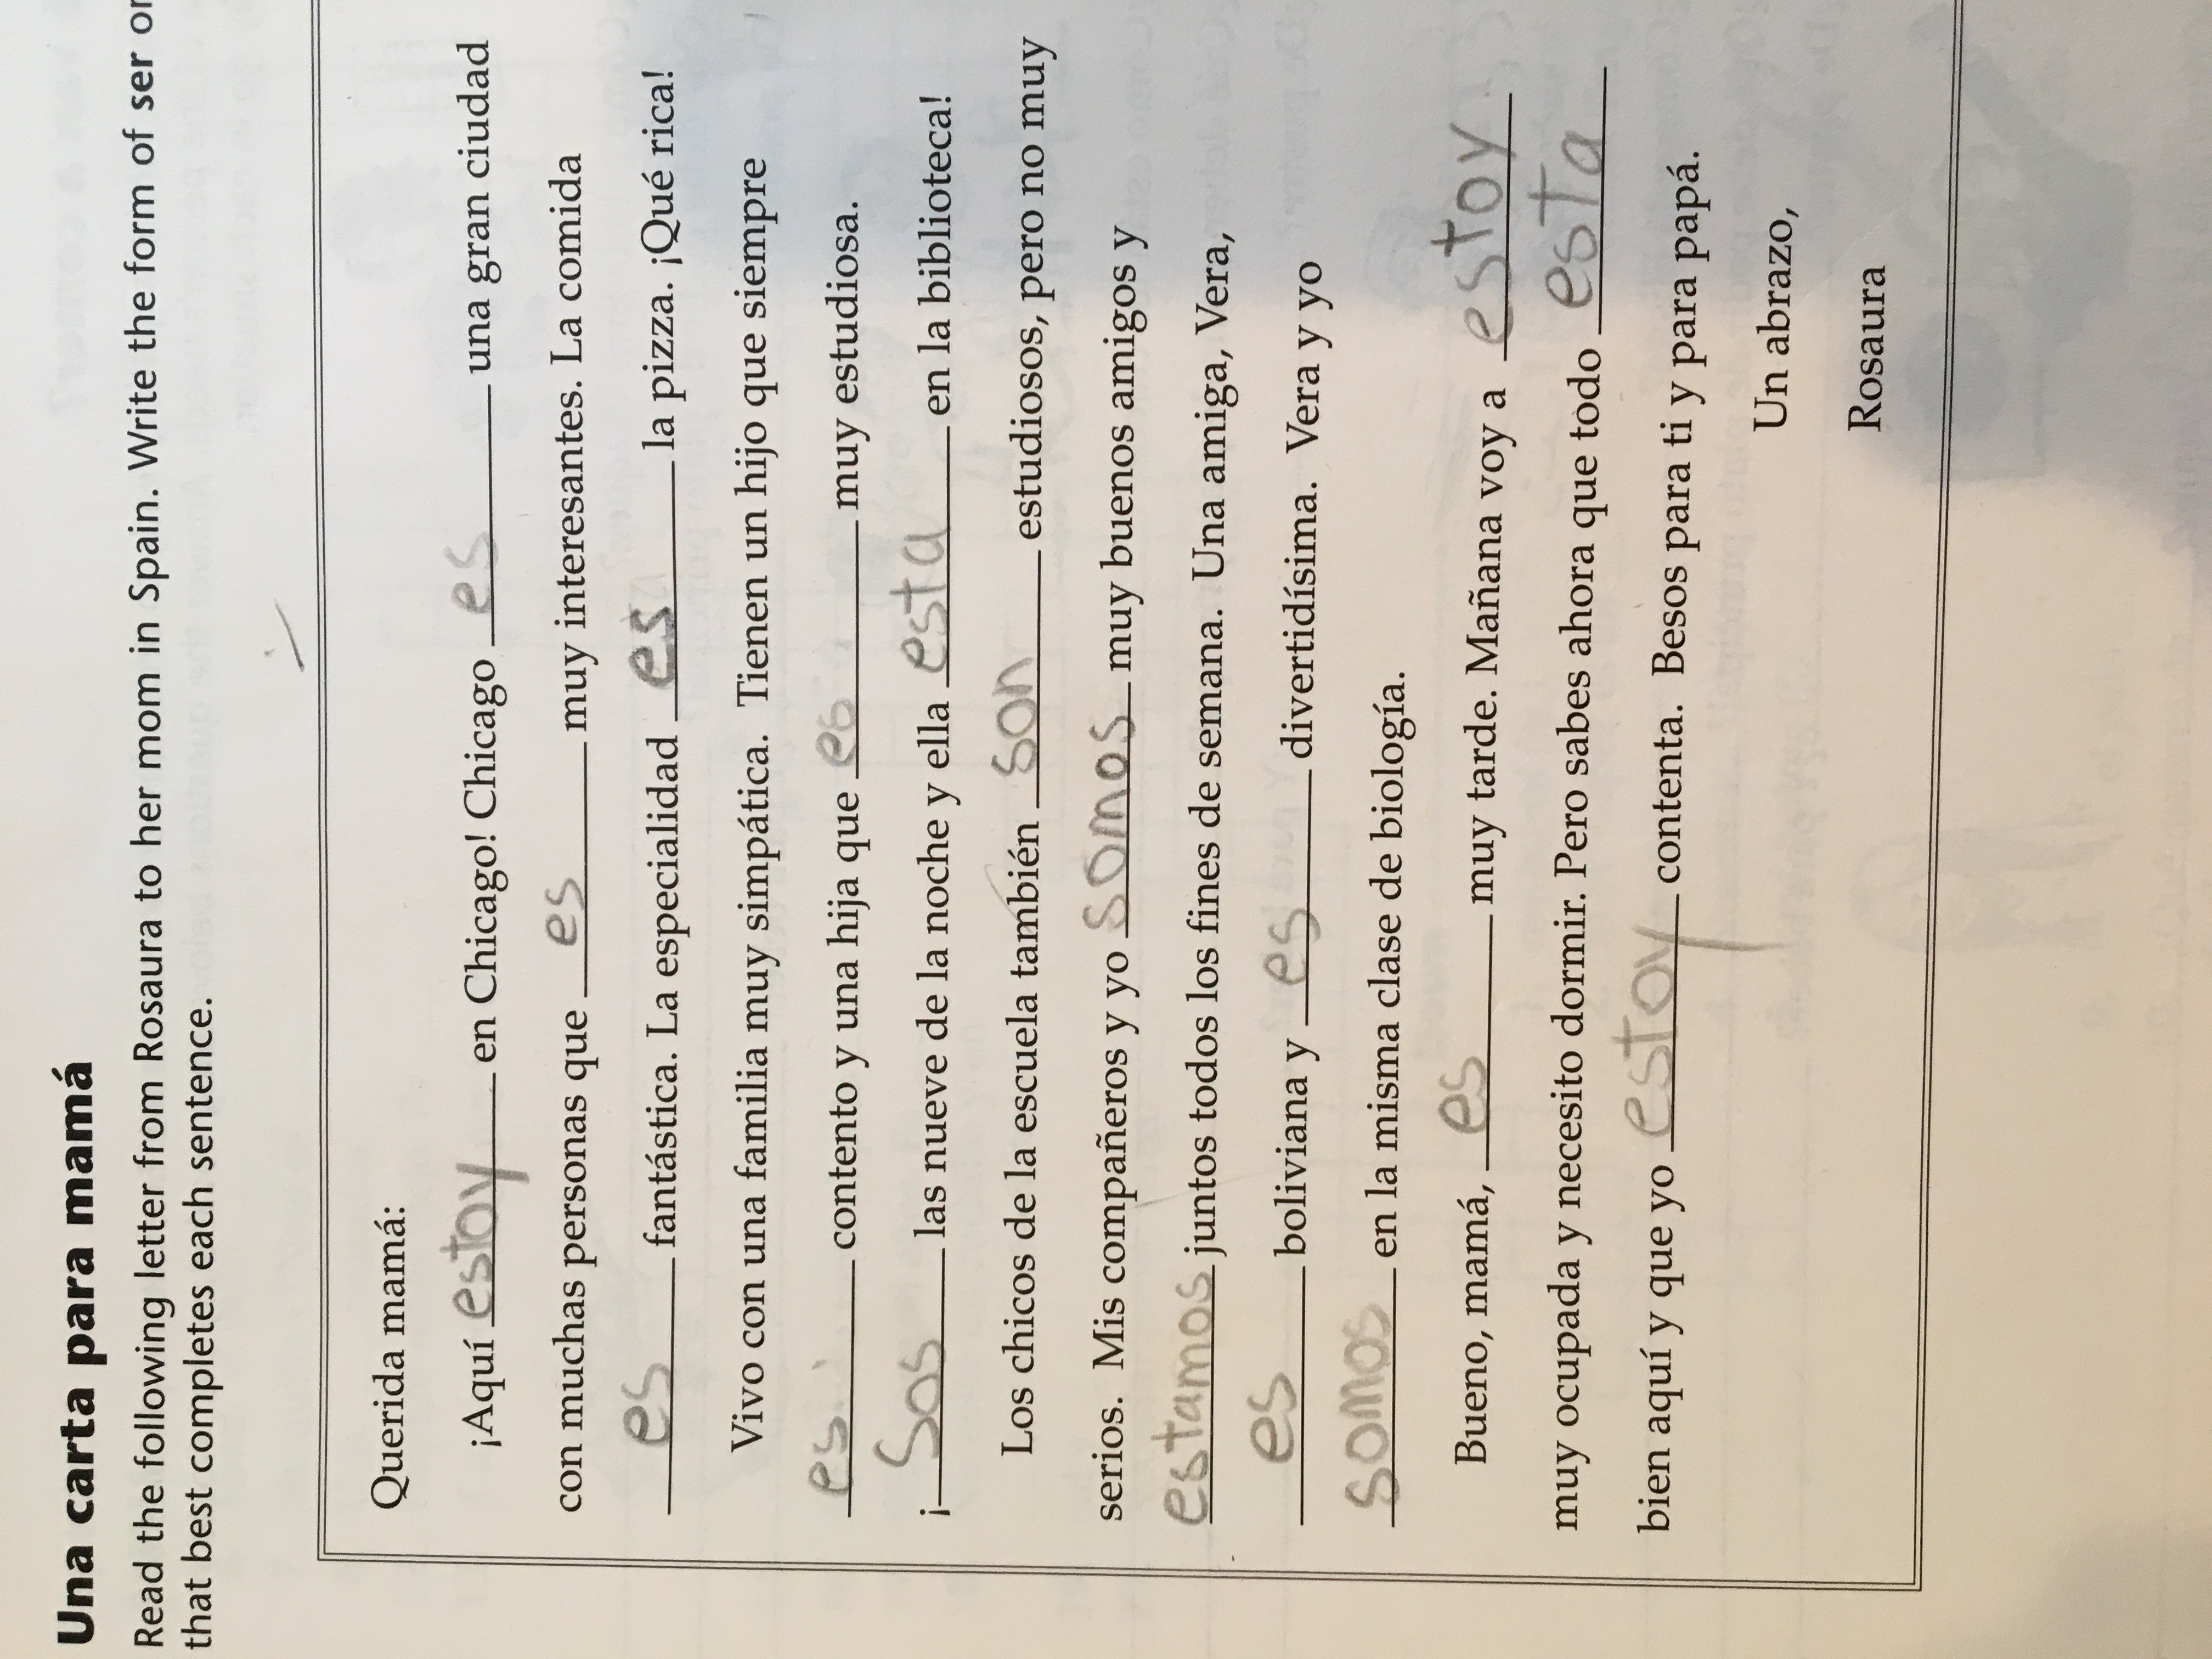 Una carta para mamá
Read the following letter from Rosaura to her mom in Spain. Write the form of ser or
that best completes each sentence.
Querida mamá:
¡Aquí estoy en Chicago! Chicago es una gran ciudad
con muchas personas que es muy interesantes. La comida
es fantástica. La especialidad es la pizza. ¡Qué rica!
Vivo con una familia muy simpática. Tienen un hijo que siempre
es contento y una hija que es muy estudiosa.
¡Sos las nueve de la noche y ella esta en la biblioteca!
Los chicos de la escuela también son estudiosos, pero no muy
serios. Mis compañeros y yo somos muy buenos amigos y
estamos juntos todos los fines de semana. Una amiga, Vera,
es boliviana y es divertidísima. Vera y yo
somos en la misma clase de biología.
Bueno, mamá, es muy tarde. Mañana voy a estoy
muy ocupada y necesito dormir. Pero sabes ahora que todo esta
bien aquí y que yo estoy contenta. Besos para ti y para papá.
Un abrazo,
Rosaura